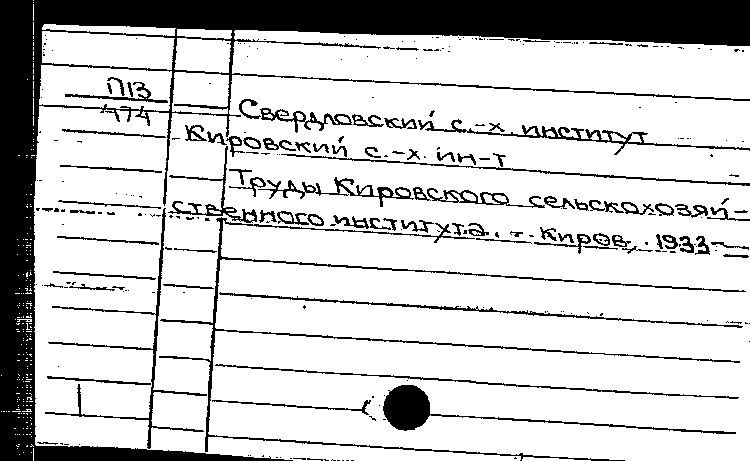 П13
474
Свердловский с.-х. институт
Кировский с.-х. ин-т
Труды Кировского сельскохозяй-
ственного института. - Киров, 1933-